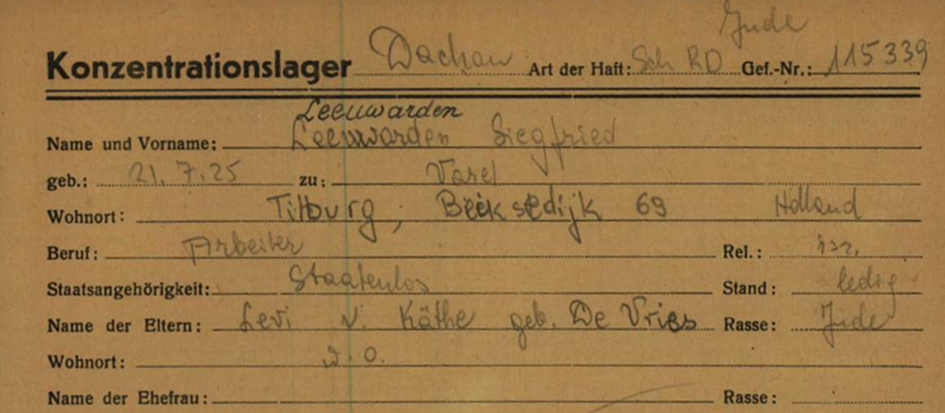 Jude
Konzentrationslager Dachau Art der Haft: Sch RD Gef.-Nr.: 115339
Leeuwarden
Name und Vorname: Leeuwarden Siegfried
geb.: 21.7.25 zu: Varel
Wohnort: Tilburg, Beeksedijk 69 Holland
Beruf: Arbeiter Rel.: isr.
Staatsangehörigkeit: Staatenlos Stand: ledig
Name der Eltern: Levi u. Käthe geb. De Vries Rasse: Jude
Wohnort: w. o.
Name der Ehefrau: Rasse: